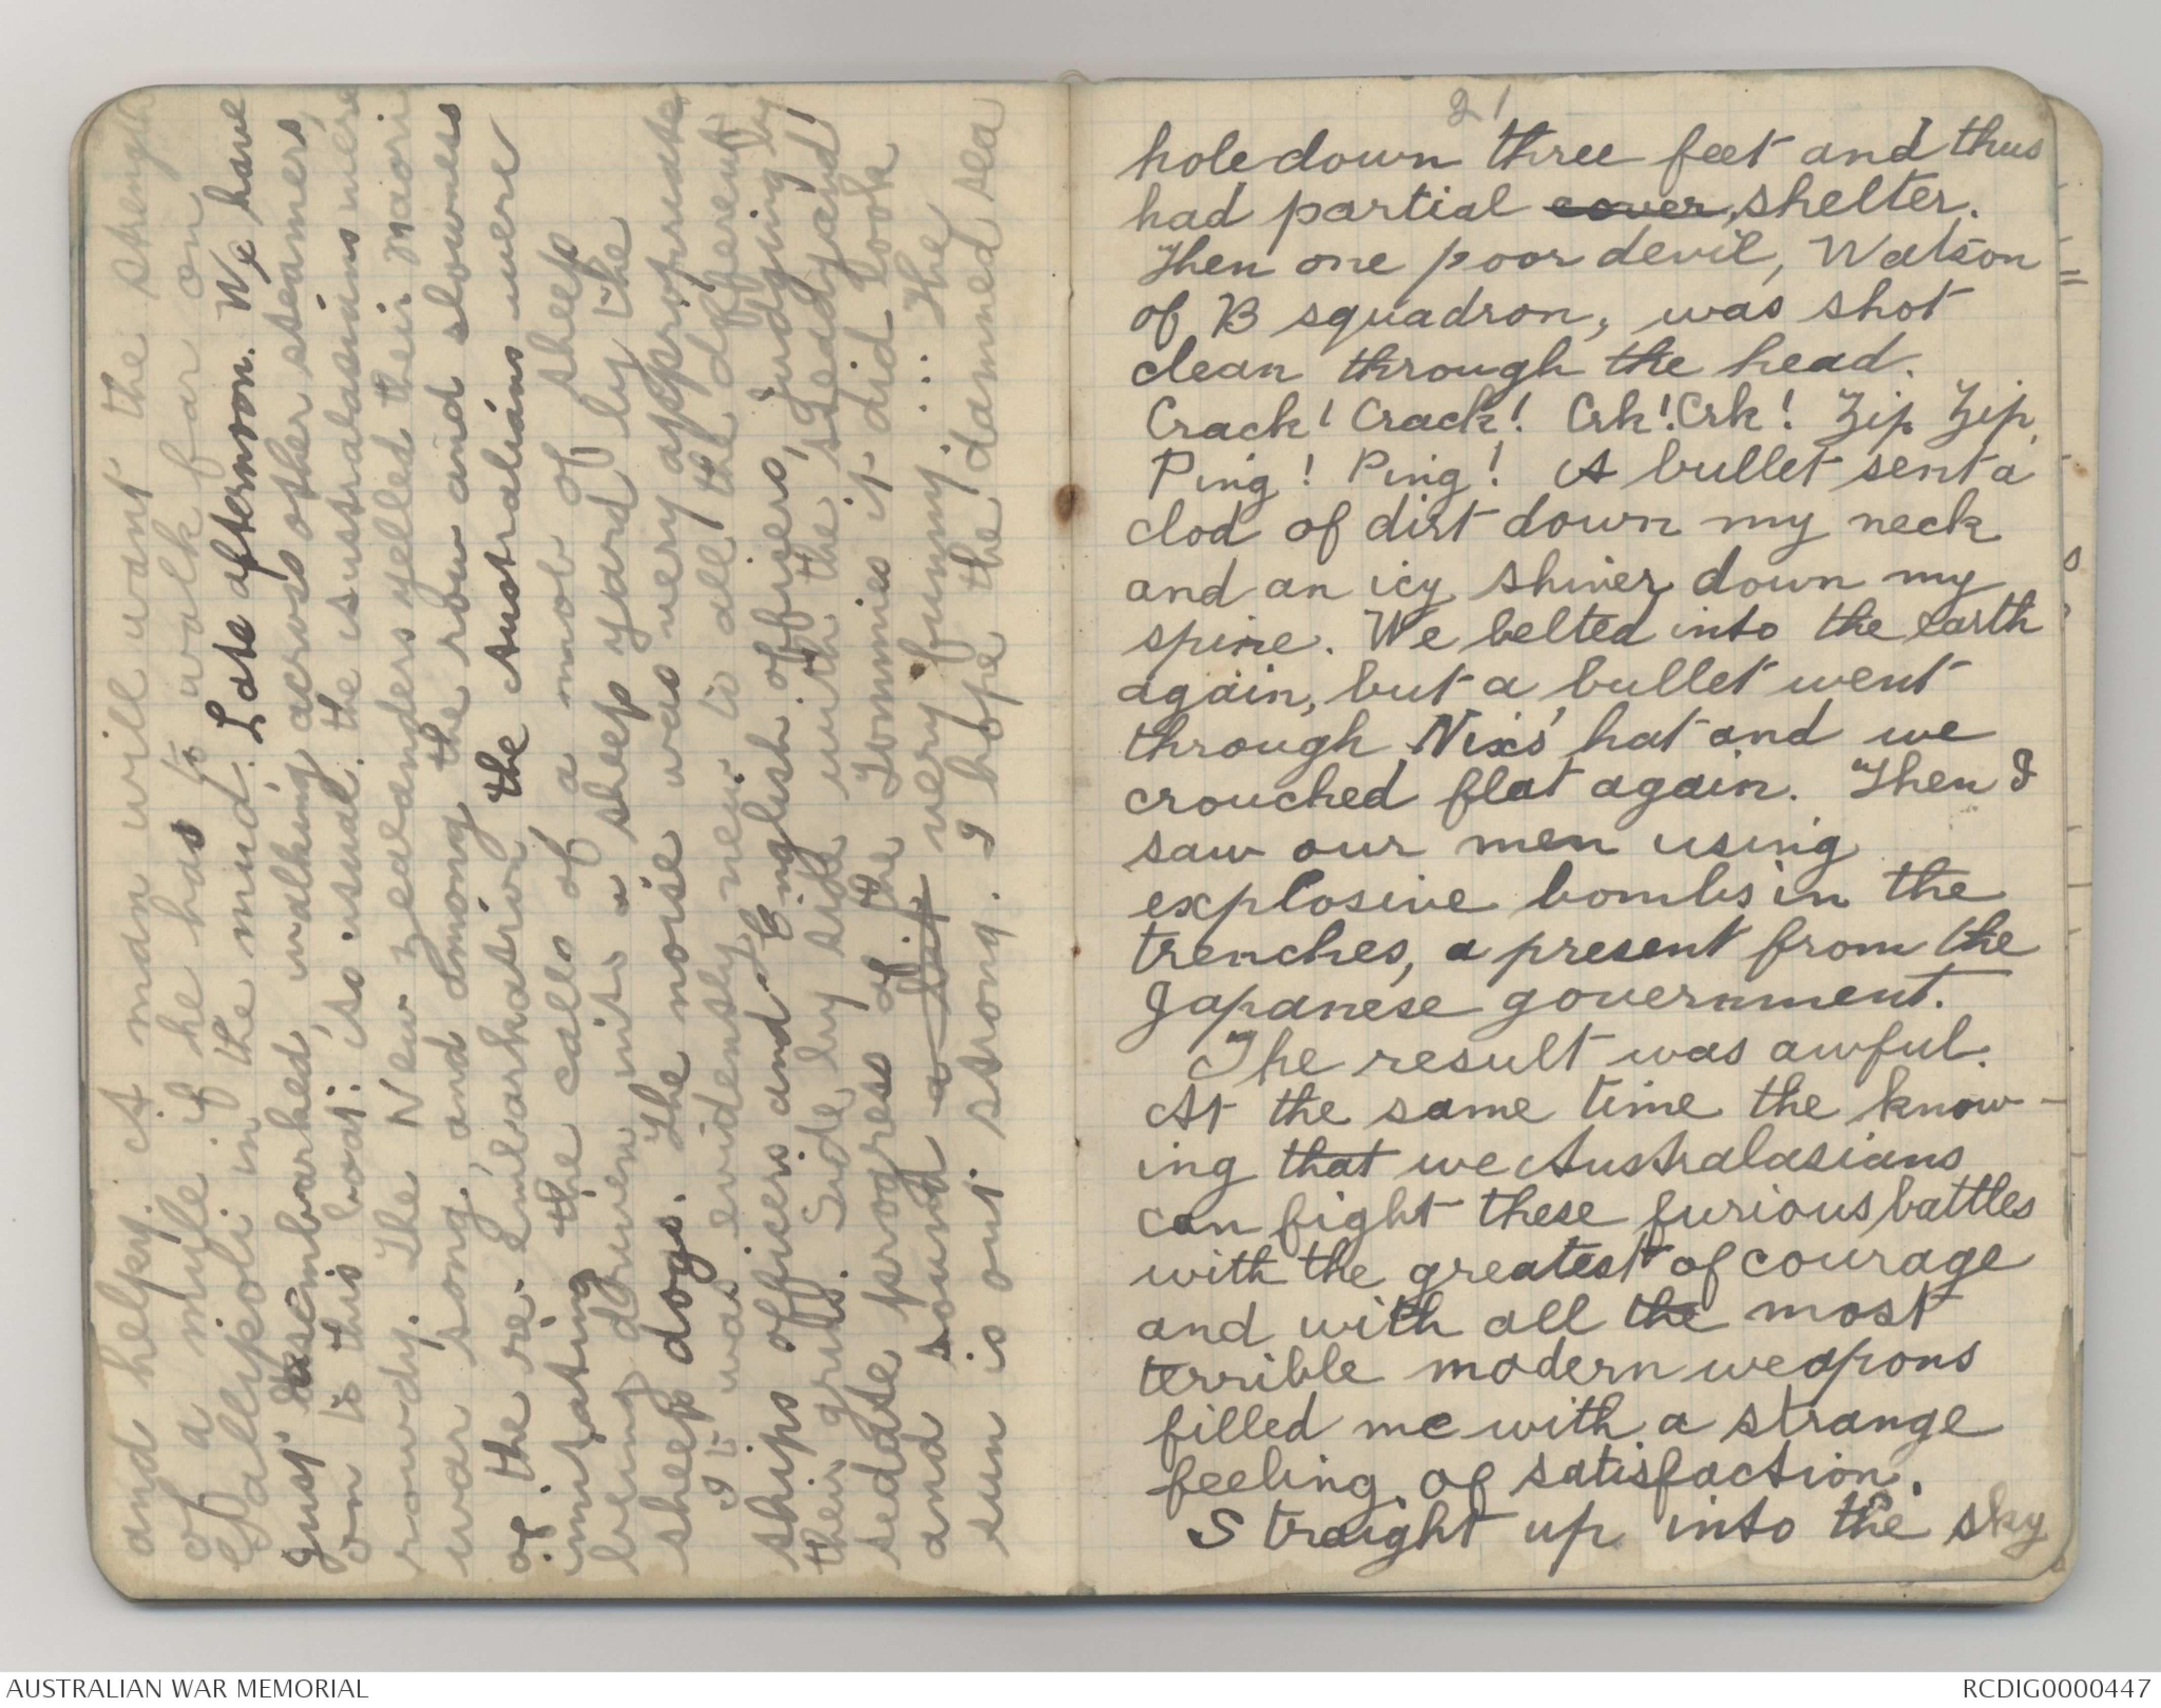 and help. A man will want the strength
of a mule if he has to walk far on
Gallipoli in the mud. Late afternoon. We have
just disembarked, walking across other steamers,
on to this boat: its usual. the Australasians were
rowdy. The New Zealanders yelled their Maori
war song, and among the row and slowness
of the re-embarkation the Australians were
imitating the calls of a mob of sheep
being driven into a sheep yard by the
sheep dogs. The noise was very appropriate
It was evidently new to all the different
ships officers and English officers, judging by
their grins. Side by side with the steady and
sedate progress of the Tommies it did look
and sound a bit very funny. ... The
sun is out strong. I hope the damned sea
21
hole down three feet and thus
had partial cover, shelter.
Then one poor devil, Watson
of B squadron, was shot
clean through the head.
Crack! Crack! Crk! Crk! Zip Zip,
Ping! Ping! A bullet sent a
clod of dirt down my neck
and an icy shiver down my
spine. We belted into the earth
again, but a bullet went
through Nix's hat and we
crouched flat again. Then I
saw our men using
explosive bombs in the
trenches, a present from the
Japanese government.
The result was awful.
At the same time the know-
ing that we Australasians
can fight these furious battles
with the greatest of courage
and with all the most
terrible modern weapons
filled me with a strange
feeling of satisfaction.
Straight up into the sky
AUSTRALIAN WAR MEMORIAL
RCDIG0000447